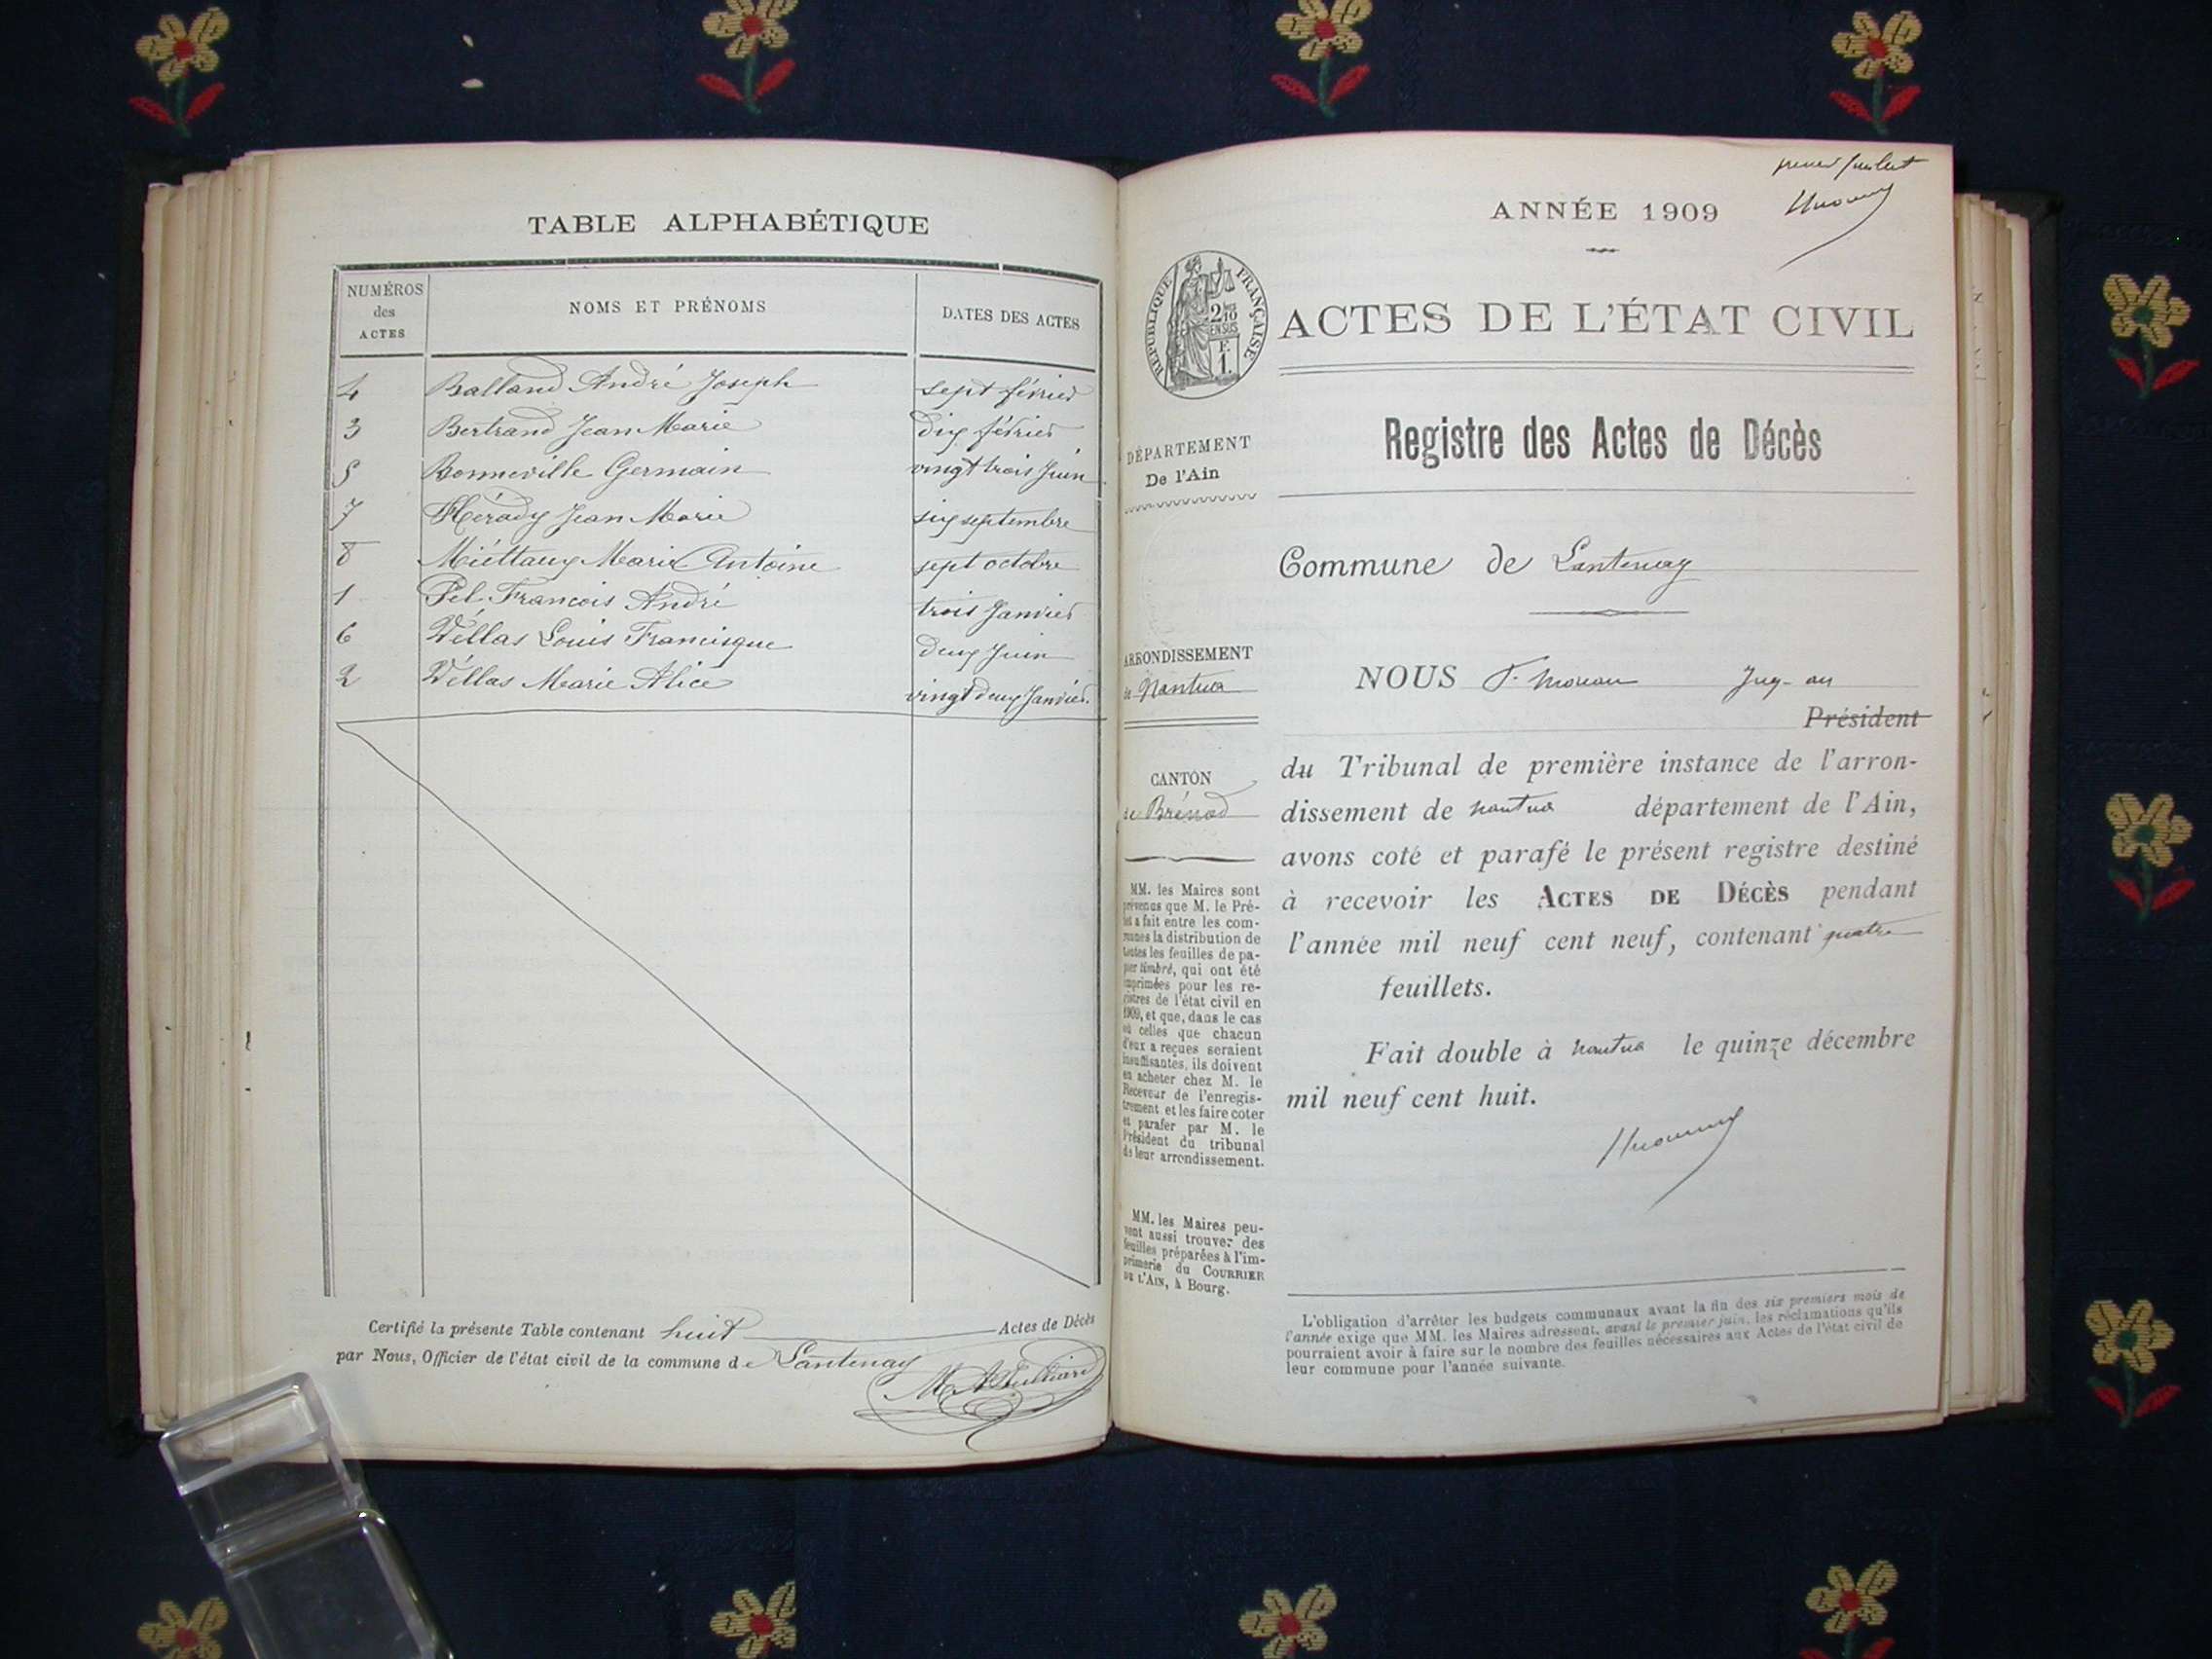 TABLE ALPHABÉTIQUE
NUMÉROS
des
ACTES
NOMS ET PRÉNOMS
DATES DES ACTES
4 Balland André Joseph sept février
3 Bertrand Jean Marie dix février
5 Bonneville Germain vingt trois Juin
7 Hérady Jean Marie six septembre
8 Miéttaux Marie Antoine sept octobre
1 Pel François André trois Janvier
6 Véllas Louis Francisque deux Juin
2 Véllas Marie Alice vingt deux Janvier.
Certifié la présente Table contenant huit Actes de Décès
par Nous, Officier de l'état civil de la commune de Lantenay
premier feuillet
ANNÉE 1909
RÉPUBLIQUE FRANÇAISE
ACTES DE L'ÉTAT CIVIL
Registre des Actes de Décès
DÉPARTEMENT
De l'Ain
Commune de Lantenay
ARRONDISSEMENT
de Nantua
CANTON
de Brénod
MM. les Maires sont
prévenus que M. le Pré-
fet a fait entre les com-
munes la distribution de
toutes les feuilles de pa-
pier timbré, qui ont été
imprimées pour les re-
gistres de l'état civil en
1909, et que, dans le cas
où celles que chacun
d'eux a reçues seraient
insuffisantes, ils doivent
en acheter chez M. le
Receveur de l'enregis-
trement et les faire coter
et parafer par M. le
Président du tribunal
de leur arrondissement.
MM. les Maires peu-
vent aussi trouver des
feuilles préparées à l'im-
primerie du COURRIER
DE L'AIN, à Bourg.
NOUS F. Moreau Juge au
Président
du Tribunal de première instance de l'arron-
dissement de Nantua département de l'Ain,
avons coté et parafé le présent registre destiné
à recevoir les ACTES DE DÉCÈS pendant
l'année mil neuf cent neuf, contenant quatre
feuillets.
Fait double à Nantua le quinze décembre
mil neuf cent huit.
L'obligation d'arrêter les budgets communaux avant la fin des six premiers mois de
l'année exige que MM. les Maires adressent, avant le premier juin, les réclamations qu'ils
pourraient avoir à faire sur le nombre des feuilles nécessaires aux Actes de l'état civil de
leur commune pour l'année suivante.